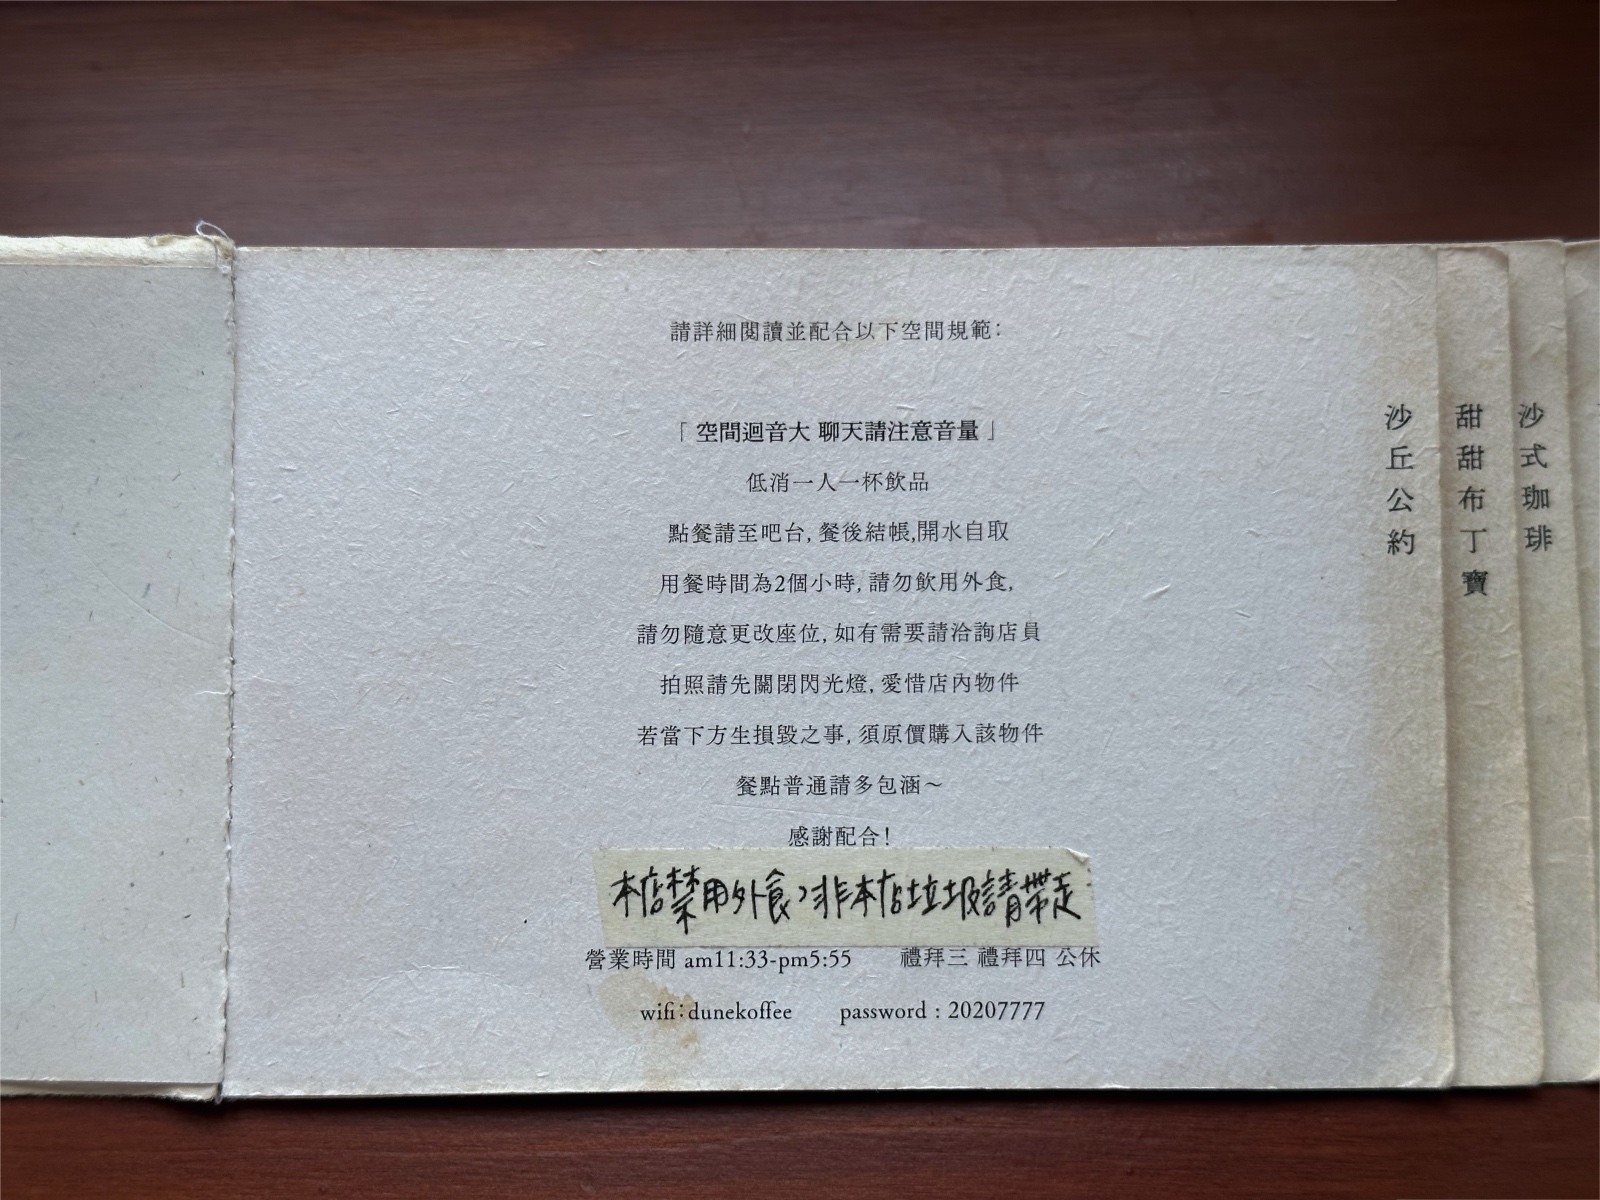 請詳細閱讀並配合以下空間規範：
「 空間迴音大 聊天請注意音量 」
低消一人一杯飲品
點餐請至吧台, 餐後結帳,開水自取
用餐時間為2個小時, 請勿飲用外食,
請勿隨意更改座位, 如有需要請洽詢店員
拍照請先關閉閃光燈, 愛惜店內物件
若當下方生損毀之事, 須原價購入該物件
餐點普通請多包涵～
感謝配合！
本店禁用外食、非本店垃圾請帶走
營業時間 am11:33-pm5:55 禮拜三 禮拜四 公休
wifi：dunekoffee password : 20207777
沙丘公約
甜甜布丁寶
沙式珈琲